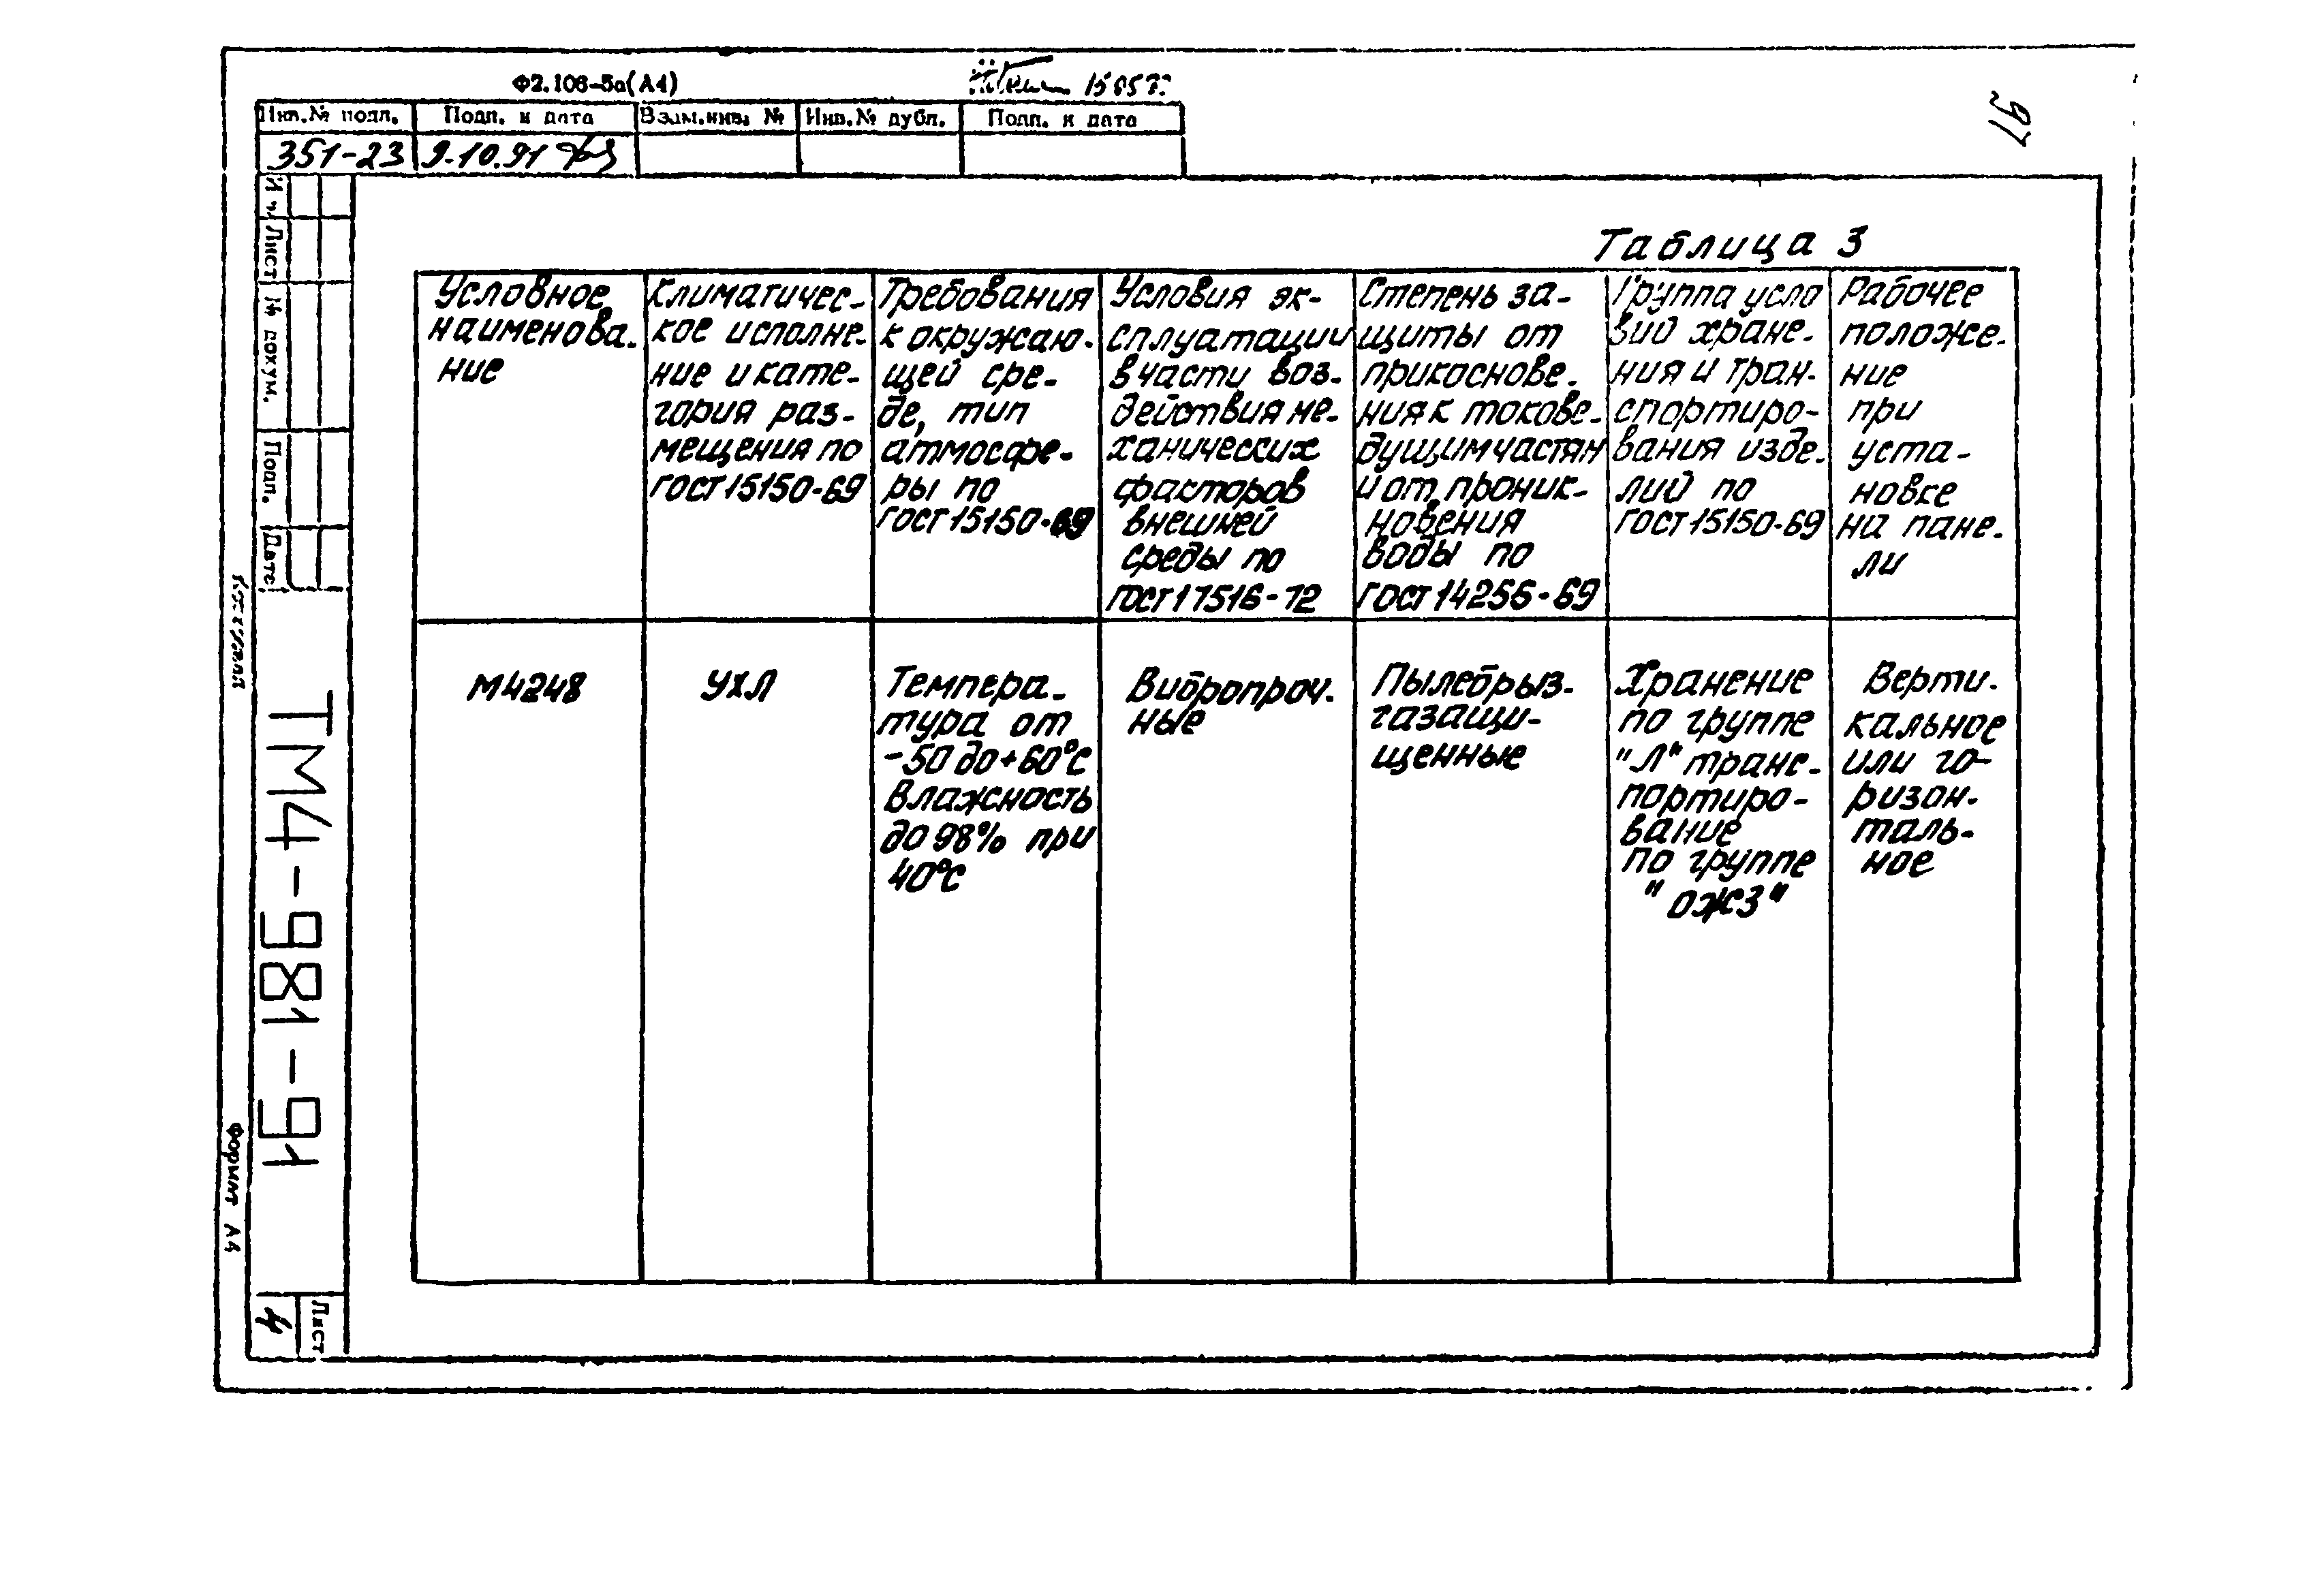 Ф2.106-5а(А4)
15 05
97
Инв.№ подл. Подп. и дата Взам.инв. № Инв.№ дубл. Подп. и дата
351-23 9.10.91
Лист № докум. Подп. Дата
Таблица 3
Условное
наименова-
ние
Климатичес-
кое исполне-
ние и кате-
гория раз-
мещения по
ГОСТ 15150-69
Требования
к окружаю-
щей сре-
де, тип
атмосфе-
ры по
ГОСТ 15150-69
Условия эк-
сплуатации
в части воз-
действия ме-
ханических
факторов
внешней
среды по
ГОСТ 17516-72
Степень за-
щиты от
прикоснове-
ния к токове-
дущим частям
и от проник-
новения
воды по
ГОСТ 14256-69
Группа усло
вий хране-
ния и тран-
спортиро-
вания изде-
лий по
ГОСТ 15150-69
Рабочее
положе-
ние
при
уста-
новке
на пане-
ли
М4248
УХЛ
Темпера-
тура от
-50 до +60°С
Влажность
до 98% при
40°С
Вибропроч-
ные
Пылебрыз-
газащи-
щенные
Хранение
по группе
"Л" транс-
портиро-
вание
по группе
"ОЖ3"
Верти-
кальное
или го-
ризон-
таль-
ное
ТМ4-981-91
Формат А4
Лист
4